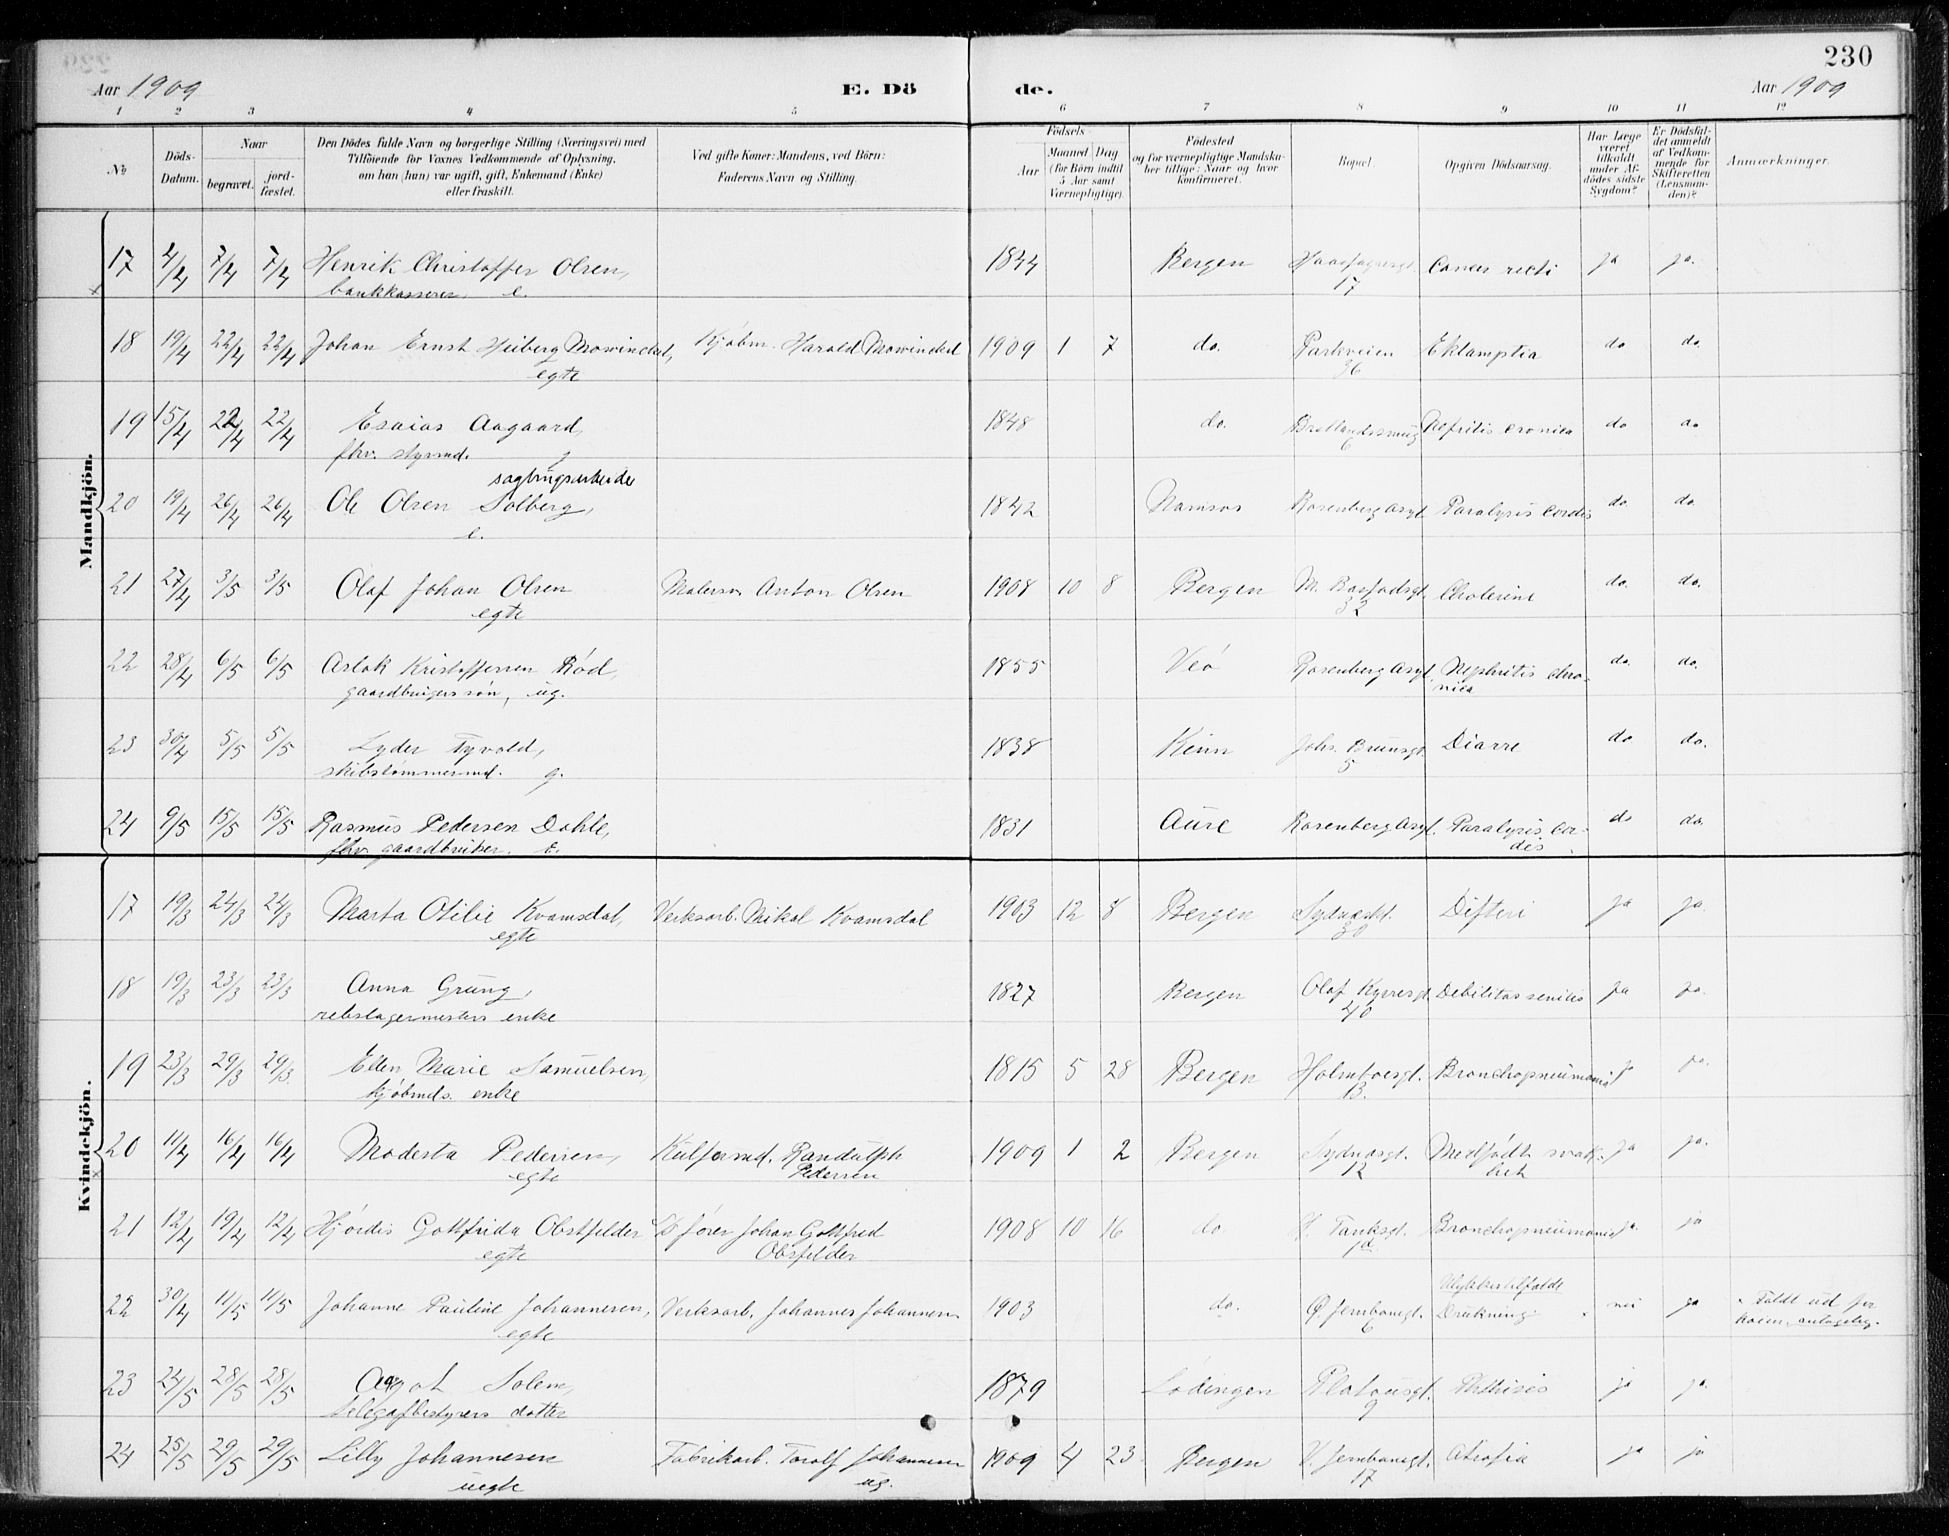 230
Aar 1909 E. Dö de. Aar 1909
1 2 3 4 5 6 7 8 9 10 11 12
№
Döds-Datum.
Naar
begravet.
jordfæstet.
Den Dödes fulde Navn og borgerlige Stilling (Næringsvei) med
Tilföiende for Voxnes Vedkommende af Oplysning,
om han (hun) var ugift, gift, Enkemand (Enke)
eller fraskilt.
Ved gifte Koner: Mandens, ved Börn:
Faderens Navn og Stilling.
Födsels-
Aar
Maaned Dag
(for Börn indtil
5 Aar samt
Værnepligtige).
Födested
og for værnepligtige Mandskaber tillige: Naar og hvor
konfirmeret.
Bopæl.
Opgiven Dödsaarsag.
Har Læge
været
tilkaldt
under Afdödes sidste
Sygdom?
Er Dödsfaldet anmeldt
af Vedkommende for
Skifteretten
(Lensmanden)?
Anmærkninger.
Mandkjön.
17 4/4 7/4 7/4 Henrik Christoffer Olsen, 1844 Bergen Haarfagresgt. Cancer recti ja ja.
bankkasserer, e. 17
18 19/4 22/4 22/4 Johan Ernst Heiberg Mowinckel, Kjøbm. Harald Mowinckel 1909 1 7 do. Parkveien Eklamptia do do.
egte 36
19 15/4 22/4 22/4 Esaias Aagaard, 1848 do. Nefritis cronica do do
fhv. styrmd. g 6
sagbrugsarbeider
20 19/4 26/4 26/4 Ole Olsen Solberg, 1842 Namsos Rosenberg Asyl Paralysis cordis do. do.
e.
21 27/4 3/5 3/5 Olaf Johan Olsen Malersv. Anton Olsen 1908 10 8 Bergen Cholerine do. do.
egte 32
22 28/4 6/5 6/5 Aslak Kristoffersen Rød, 1855 Veø Rosenberg Asyl. Nephritis chronica do. do.
gaardbrugers søn, ug.
23 30/4 5/5 5/5 Lyder Tyvold, 1838 Kinn Johs. Brunsgt. Diarre do do.
skibstømmermd. g. 5
24 9/5 15/5 15/5 Rasmus Pedersen Dahle, 1831 Aure Rosenberg Asyl. Paralysis cordis do do.
fhv. gaardbruker. e.
Kvindekjön.
17 19/3 24/3 24/3 Marta Otilie Kvamsdal, Verksarb. Mikal Kvamsdal 1903 12 8 Bergen Difteri ja ja.
egte 30
18 19/3 23/3 23/3 Anna Grung, 1827 Bergen Olaf Kyrresgt. Debilitas senilis ja ja.
rebslagermesters enke 40
19 23/3 29/3 29/3 Ellen Marie Samuelsen, 1815 5 28 Bergen Holmboesgt. Bronchopneumonia ja ja.
kjøbmds. enke 13.
20 11/4 16/4 16/4 Modesta Pedersen, Kulformd. Randulph Pedersen 1909 1 2 Bergen Sydnesgt. Medfødt svakhet ja ja.
egte 12
21 12/4 19/4 12/4 Hjørdis Gottfrida Obstfelder Johan Gottfred Obstfelder 1908 10 16 do Tanksgt. Bronchopneumonia ja. ja
egte
22 30/4 11/5 11/5 Johanne Pauline Johannesen, Verksarb. Johannes Johannesen 1903 do. Ø. Jernbanegt. Ulykkestilfælde Drukning nei ja Faldt ud fra kaien, antagelig.
egte 6
23 24/5 28/5 28/5 Aagot Solem, 1879 Lødingen Platousgt. Phthisis ja ja.
telegrafbestyrers datter 9
24 25/5 29/5 29/5 Lilly Johannesen Fabrikarb. Toralf Johannesen 1909 4 23 Bergen V. Jernbanegt. Atrofia ja ja
uegte ug. 17